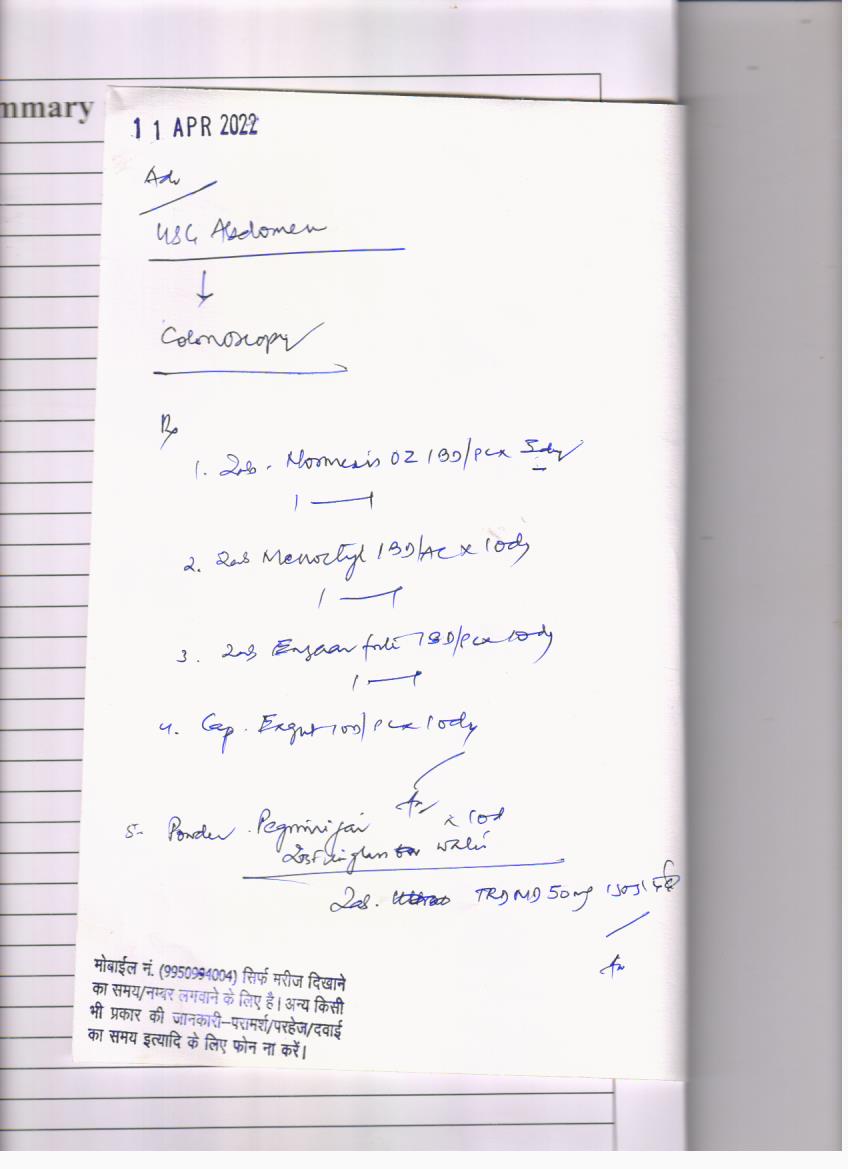 mmary
11 APR 2022
Adv
USG Abdomen
↓
Colonoscopy
Rx
1. Tab. Normexis OZ 1BD/PC x 5dy
2. Tab Menoctyl 1BD/AC x 10dy
3. Tab Enzaar forte 1BD/PC x 10dy
4. Cap. Exgut 1OD/PC x 10dy
5- Powder. x 10d
in glass water
Tab. TRD MD 50mg
मोबाईल नं. (9950994004) सिर्फ मरीज दिखाने
का समय/नम्बर लगवाने के लिए है। अन्य किसी
भी प्रकार की जानकारी–परामर्श/परहेज/दवाई
का समय इत्यादि के लिए फोन ना करें।